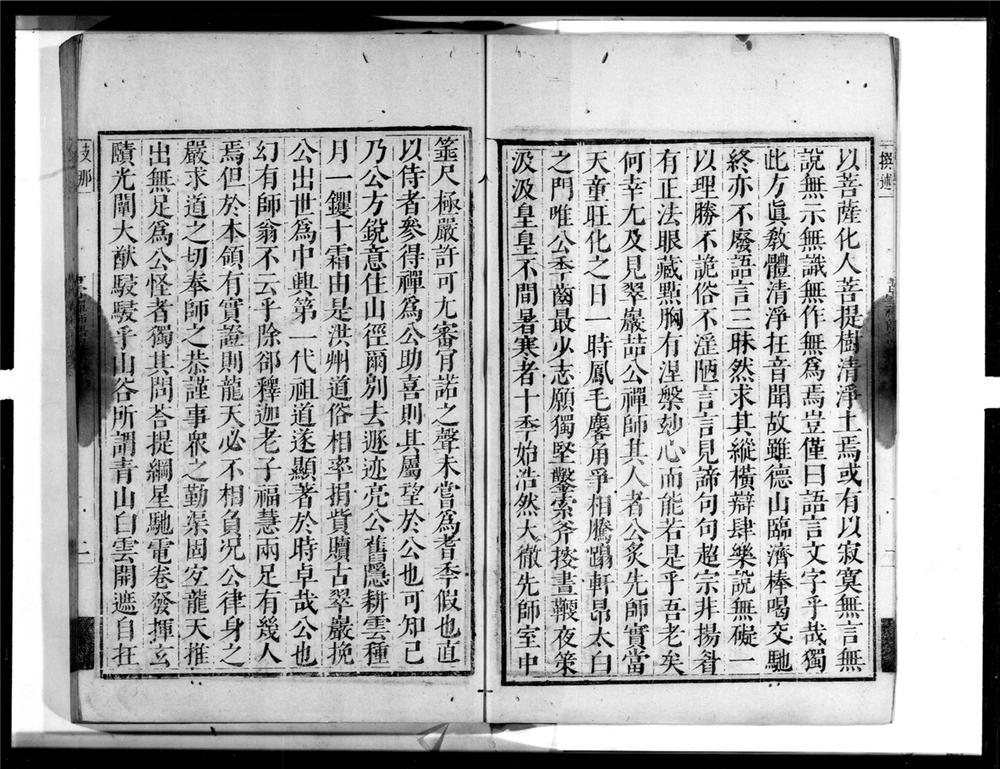 以菩薩化人菩提樹清淨土焉或有以寂寞無言無
說無示無識無作無爲焉豈僅曰語言文字乎哉獨
此方眞敎體清淨在音聞故雖德山臨濟棒喝交馳
終亦不廢語言三昧然求其縱橫辯肆樂說無礙一
以理勝不詭俗不淫陋言言見諦句句超宗非揚眉
有正法眼藏點胸有涅槃玅心而能若是乎吾老矣
何幸尢及見翠巖喆公禪師其人者公炙先師實當
天童旺化之日一時鳳毛麐角爭相騰踢軒昂太白
之門唯公秊齒最少志願獨堅鑿索斧㨷晝鞭夜策
汲汲皇皇不間暑寒者十秊始浩然大徹先師室中
箠尺極嚴許可尢審肎諾之聲未嘗爲耆秊假也直
以侍者參得禪爲公助喜則其屬望於公也可知已
乃公方銳意住山徑爾別去遯迹亮公舊隱耕雲種
月一钁十霜由是洪州道俗相率捐貲贖古翠巖挽
公出世爲中興第一代祖道遂顯著於時卓哉公也
幻有師翁不云乎除郤釋迦老子福慧兩足有幾人
焉但於本領有實證則龍天必不相負况公律身之
嚴求道之切奉師之恭謹事衆之勤渠固宐龍天推
出無足爲公怪者獨其問荅提綱星馳電卷發揮玄
賾光闡大猷駸駸乎山谷所謂青山白雲開遮自在
撰述
支那
二